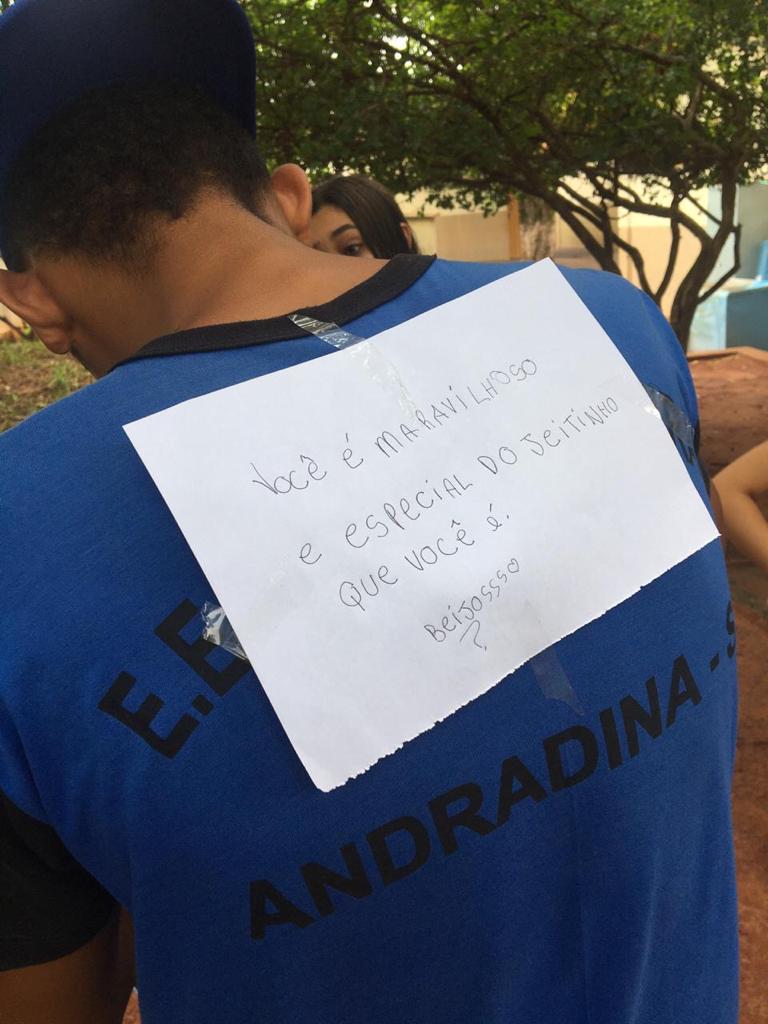 Você é MARAVILHOSO
e especial do jeitinho
que você é.
Beijossso
?
E.E
ANDRADINA - S